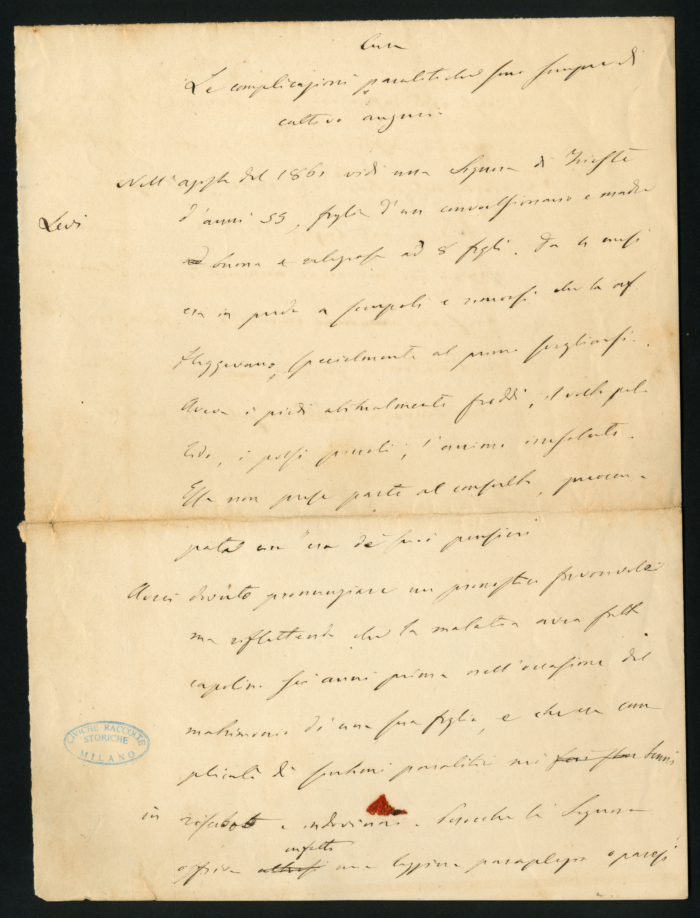 Cura
Le complicazioni paralitiche sono sempre di
cattivo augurio
Nell' agosto del 1861 vidi una Signora di Trieste
Levi
d'anni 53, figlia d'un convulsionario e madre
buona e religiosa ad 8 figli. Da 4 mesi
era in preda a scrupoli e rimorsi che la af
fliggevano, specialmente al primo svegliarsi.
Aveva i piedi abitualmente freddi, il volto pal
lido, i polsi piccoli, l'animo irresoluto.
Essa non prese parte al consulto, preoccu-
pata era de' suoi pensieri
Avrei dovuto pronunziare un pronostico favorevole
ma riflettendo che la malattia avea fatto
capolino sei anni prima nell'occasione del
matrimonio di una sua figlia, e che era com
plicata di sintomi paralitici mi
in a indovinai. Perocchè la Signora
infatti
offriva una leggiera paraplegia e paresi
CIVICHE RACCOLTE
STORICHE
MILANO